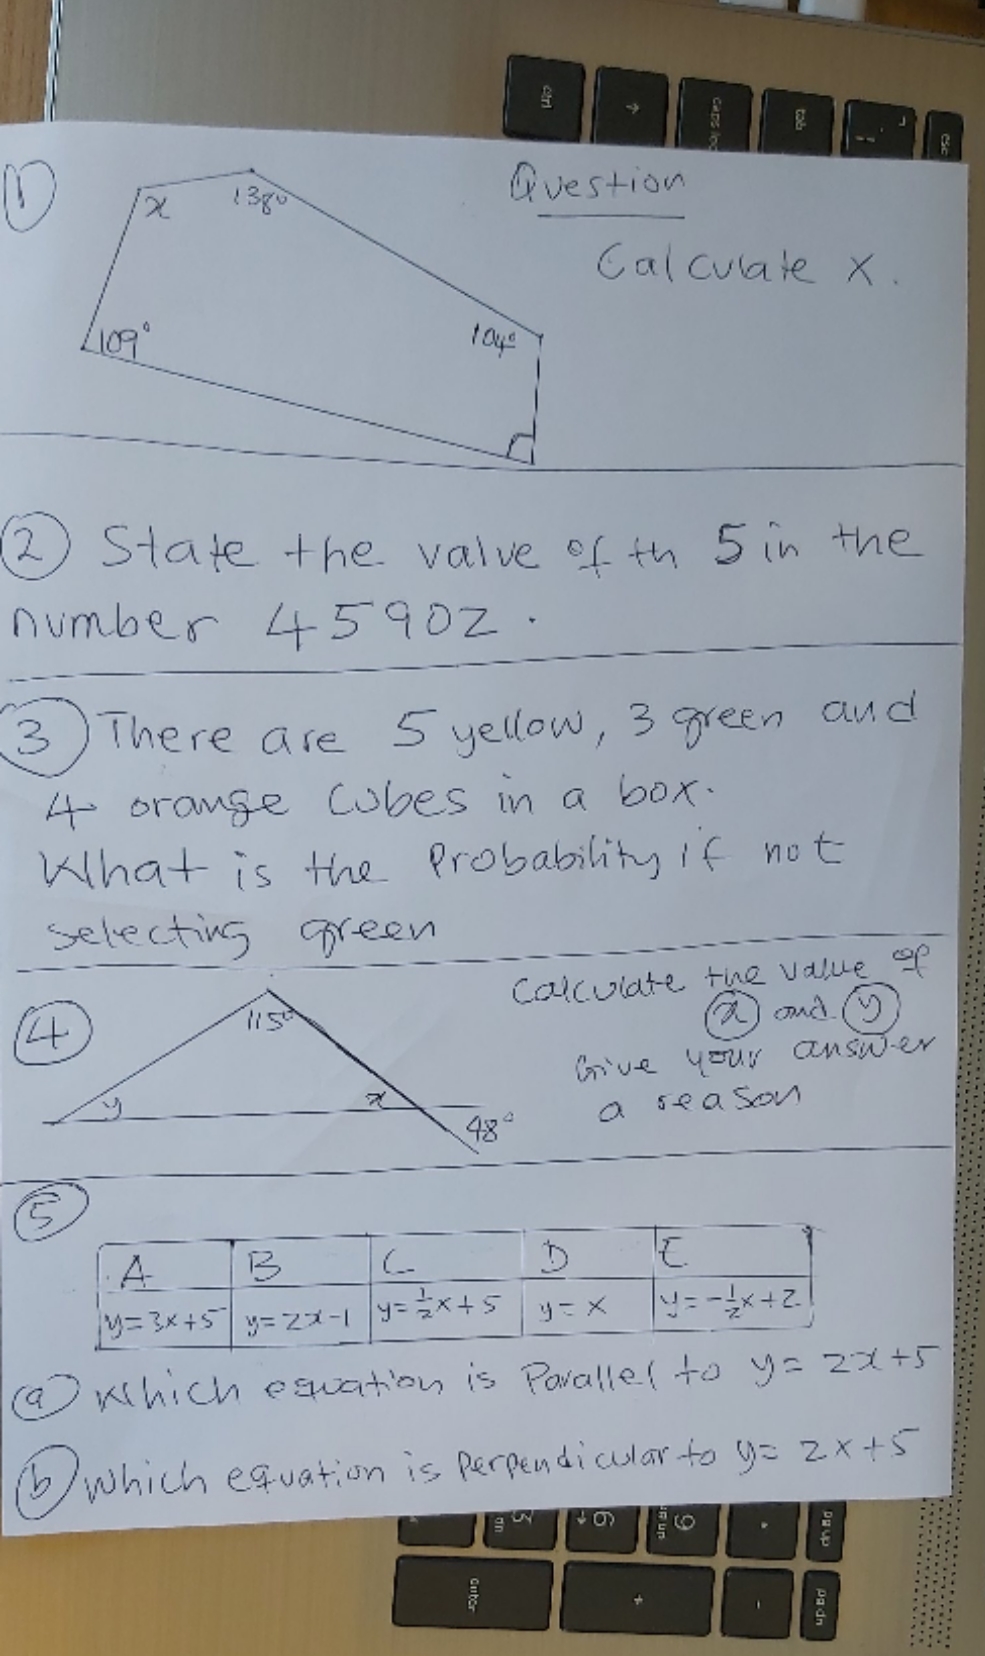 ctrl
caps loc
tab
esc
1
x
138°
109°
104°
Question
Calculate x.
2 State the value of th 5 in the
number 45902.
3 There are 5 yellow, 3 green and
4 orange cubes in a box.
What is the Probability if not
selecting green
4
115°
y
x
48°
Calculate the value of
x and y
Give your answer
a reason
5
A B C D E
y=3x+5 y=2x-1 y=½x+5 y=x y=-½x+2
a Which equation is Parallel to y=2x+5
b Which equation is perpendicular to y=2x+5
3
6
9
pg up
enter
+
-
pg dn